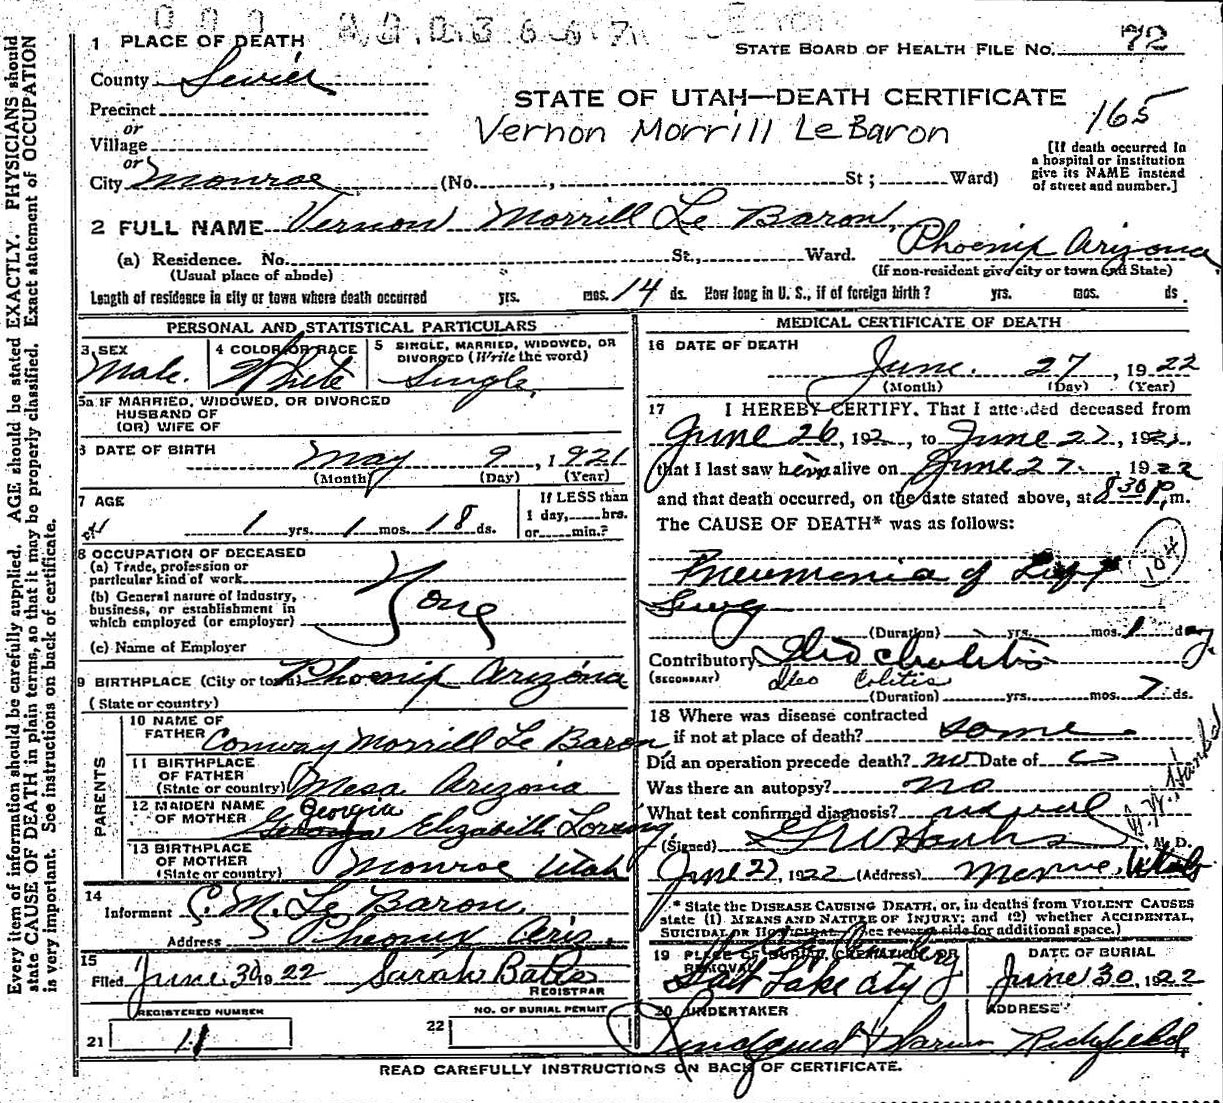 1 PLACE OF DEATH
STATE BOARD OF HEALTH FILE No. 72
County Sevier
STATE OF UTAH—DEATH CERTIFICATE
165
Precinct
or
Village
Vernon Morrill LeBaron
[If death occurred in
a hospital or institution
give its NAME instead
of street and number.]
or
City Monroe (No. , St ; Ward)
2 FULL NAME Vernon Morrill Le Baron,
(a) Residence. No. St., Ward. Phoenix Arizona
(Usual place of abode) (If non-resident give city or town and State)
Length of residence in city or town where death occurred yrs. mos. 14 ds. How long in U. S., if of foreign birth? yrs. mos. ds.
PERSONAL AND STATISTICAL PARTICULARS
3 SEX Male.
4 COLOR OR RACE White
5 SINGLE, MARRIED, WIDOWED, OR
DIVORCED (Write the word)
Single,
5a IF MARRIED, WIDOWED, OR DIVORCED
HUSBAND OF
(OR) WIFE OF
6 DATE OF BIRTH May 9, 1921
(Month) (Day) (Year)
7 AGE
1 yrs. 1 mos. 18 ds.
If LESS than
1 day, hrs.
or min.?
8 OCCUPATION OF DECEASED
(a) Trade, profession or
particular kind of work
(b) General nature of industry,
business, or establishment in
which employed (or employer)
None
(c) Name of Employer
9 BIRTHPLACE (City or town) Phoenix Arizona
(State or country)
PARENTS
10 NAME OF
FATHER Conway Morrill Le Baron
11 BIRTHPLACE
OF FATHER
(State or country) Mesa Arizona
12 MAIDEN NAME
OF MOTHER Georgia Elizabeth
13 BIRTHPLACE
OF MOTHER
(State or country) Monroe Utah
14
Informant C. M. Le Baron,
Address Pheonix Ariz.
15
Filed June 30 1922 Sarah Bates
REGISTRAR
REGISTERED NUMBER
21 11
NO. OF BURIAL PERMIT
22
MEDICAL CERTIFICATE OF DEATH
16 DATE OF DEATH
June. 27, 1922
(Month) (Day) (Year)
17 I HEREBY CERTIFY, That I attended deceased from
June 26, 192 , to June 27, 192
that I last saw him alive on June 27. 1922
and that death occurred, on the date stated above, at 8 30 p, m.
The CAUSE OF DEATH* was as follows:
104
Pneumonia of Left
Lung
(Duration) yrs. mos. 1 day
Contributory Ileo
(SECONDARY) Ileo Colitis
(Duration) yrs. mos. 7 ds.
18 Where was disease contracted
if not at place of death? some
Did an operation precede death? no Date of
Was there an autopsy? no
What test confirmed diagnosis?
(Signed) M. D.
June 27, 1922 (Address) Monroe, Utah
* State the DISEASE CAUSING DEATH, or, in deaths from VIOLENT CAUSES
state (1) MEANS AND NATURE OF INJURY; and (2) whether ACCIDENTAL,
SUICIDAL OR HOMICIDAL. (See reverse side for additional space.)
19 PLACE OF BURIAL, CREMATION OR
REMOVAL
Salt Lake City
DATE OF BURIAL
June 30, 1922
20 UNDERTAKER
ADDRESS
Richfield
READ CAREFULLY INSTRUCTIONS ON BACK OF CERTIFICATE.
Every item of information should be carefully supplied. AGE should be stated EXACTLY. PHYSICIANS should
state CAUSE OF DEATH in plain terms, so that it may be properly classified. Exact statement of OCCUPATION
is very important. See instructions on back of certificate.